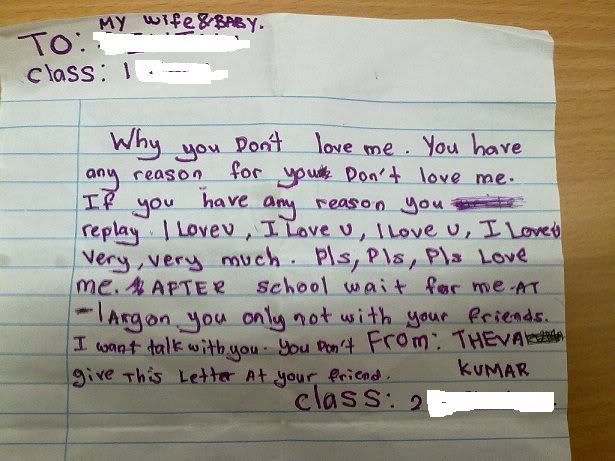 MY wife & BABY.
TO:
class: 1
Why you Don't love me. You have
any reason for you Don't love me.
If you have any reason you
replay. I Loveu, I Love u, I Love u, I Loveu
very, very much. Pls, Pls, Pls Love
me. AFTER school wait for me AT
-1Argon you only not with your friends.
I want talk with you. You Don't From: THEVA
give This Letter At your friend. KUMAR
class: 2